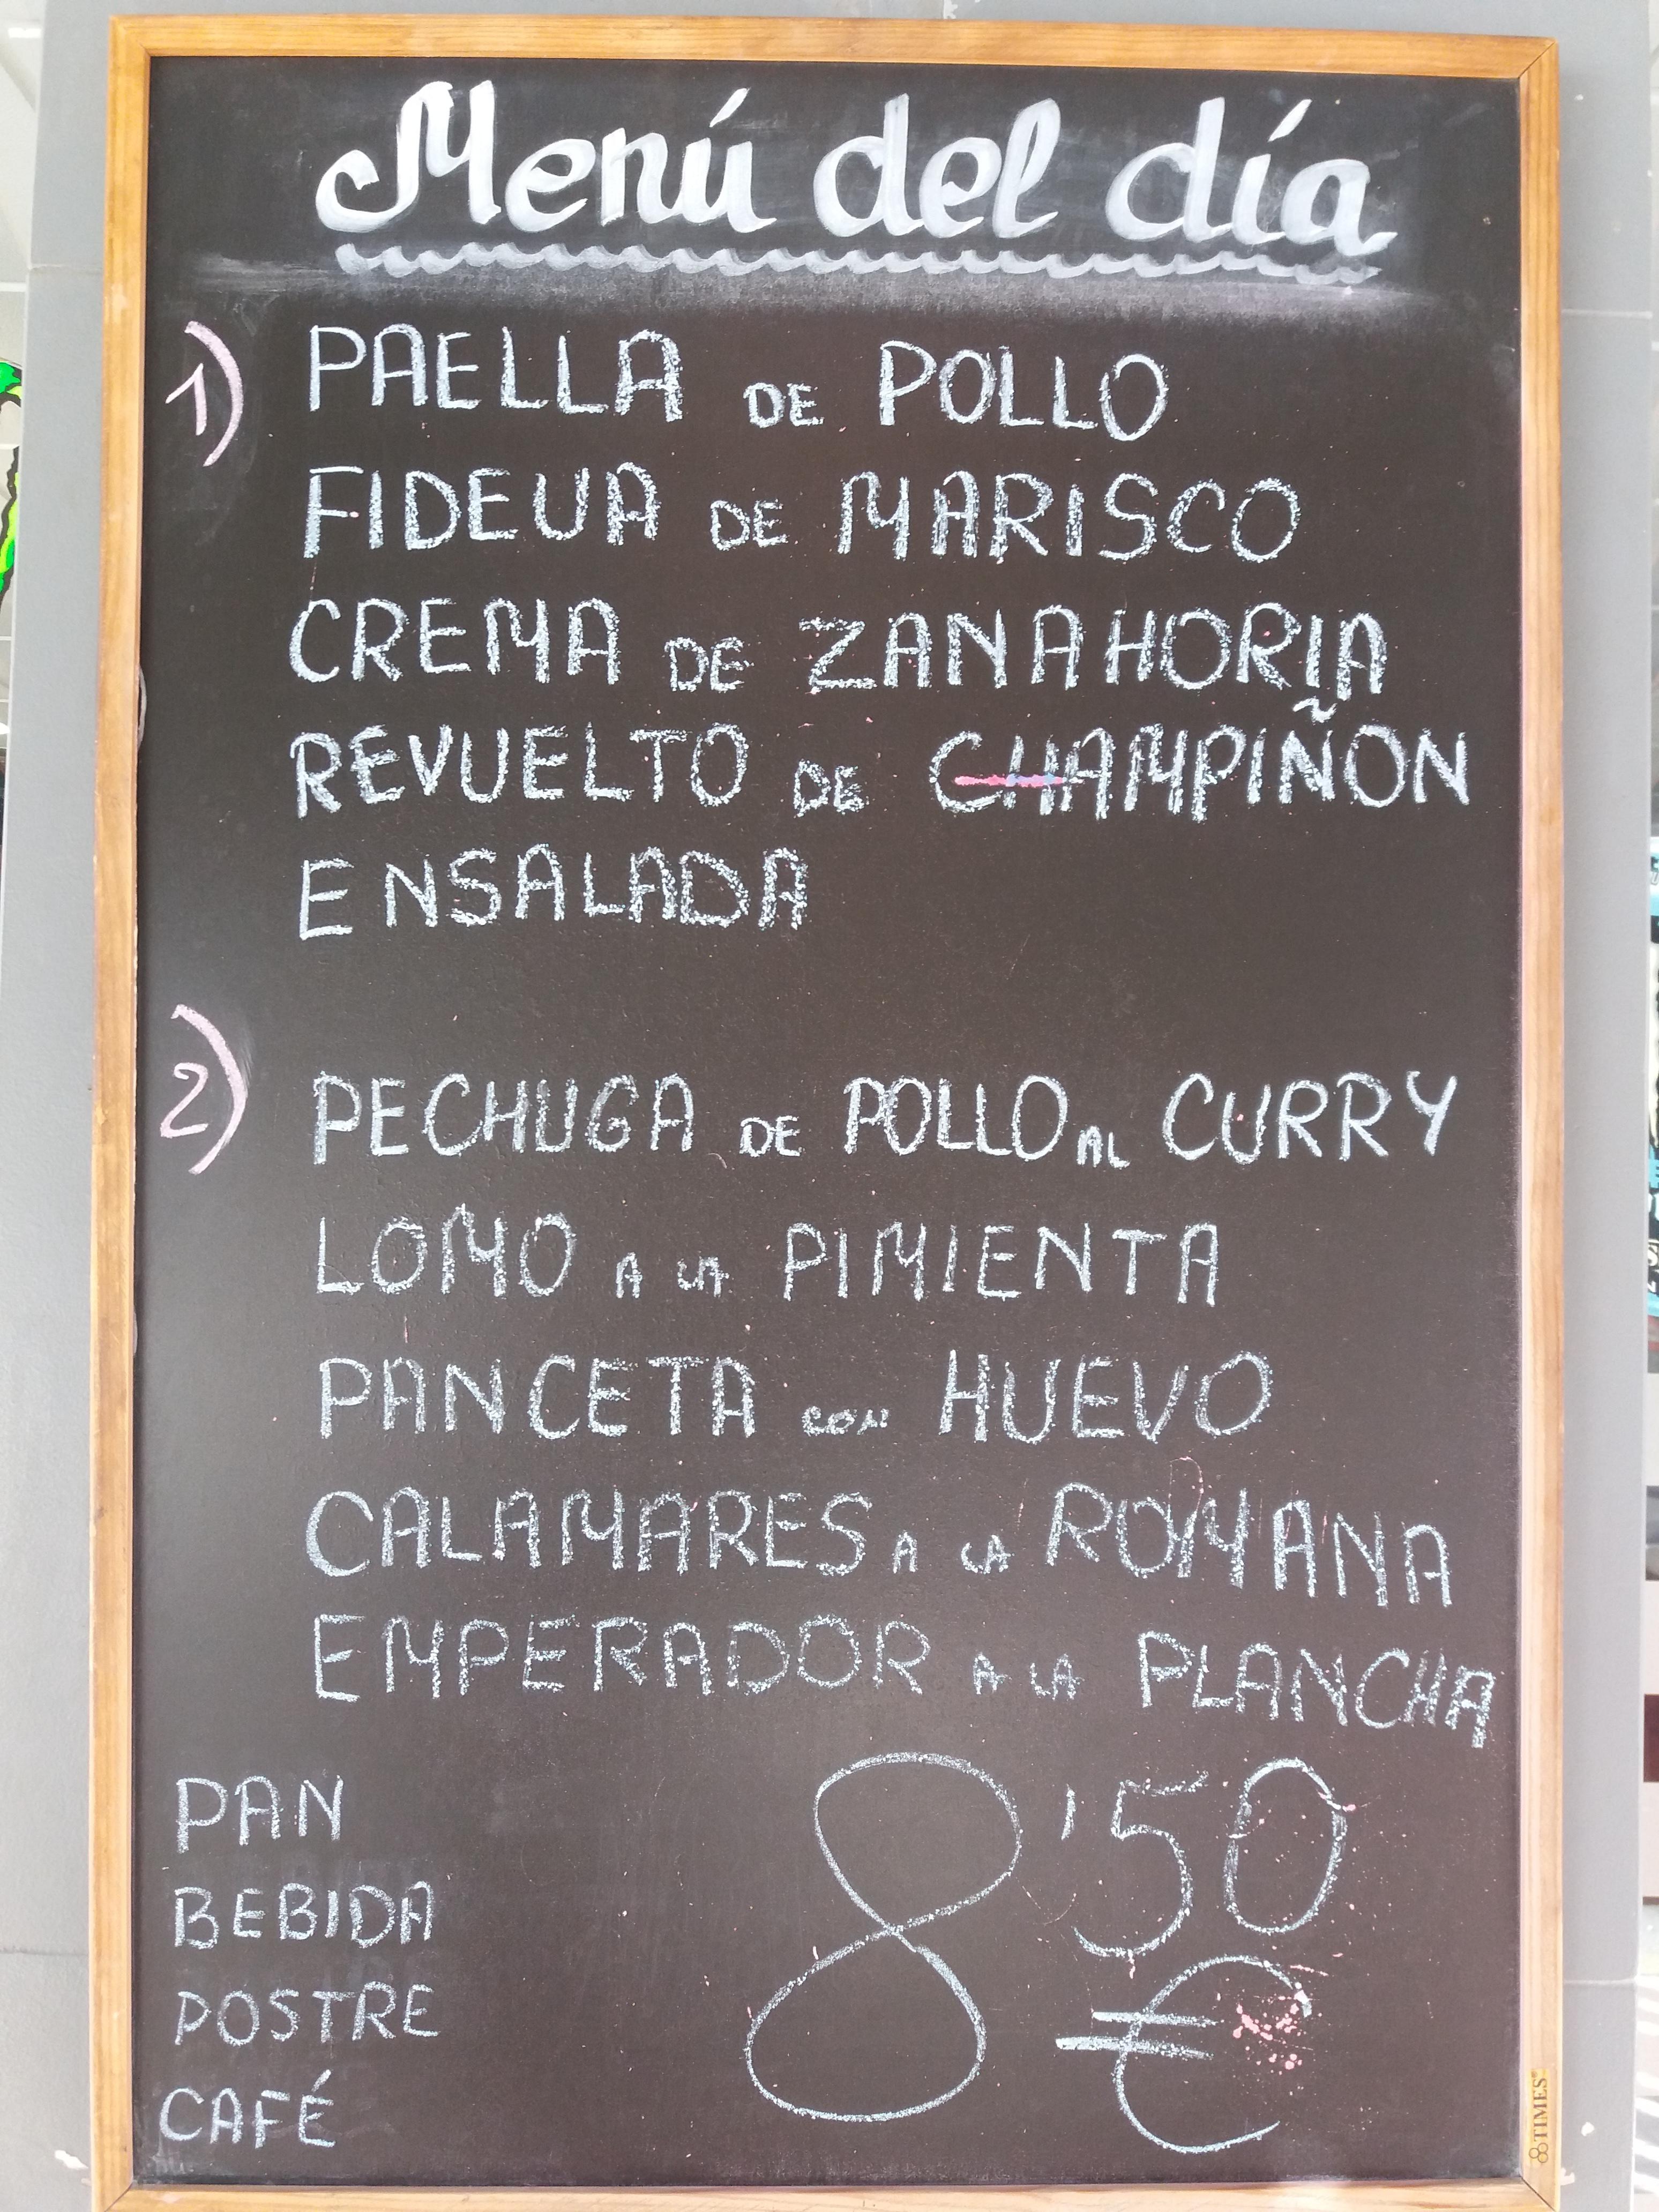 Menú del día
1) PAELLA DE POLLO
FIDEUA DE MARISCO
CREMA DE ZANAHORIA
REVUELTO DE CHAMPIÑON
ENSALADA
2) PECHUGA DE POLLO AL CURRY
LOMO A LA PIMIENTA
PANCETA CON HUEVO
CALAMARES A LA ROMANA
EMPERADOR A LA PLANCHA
PAN
BEBIDA
POSTRE
CAFÉ
8'50
€
TIMES